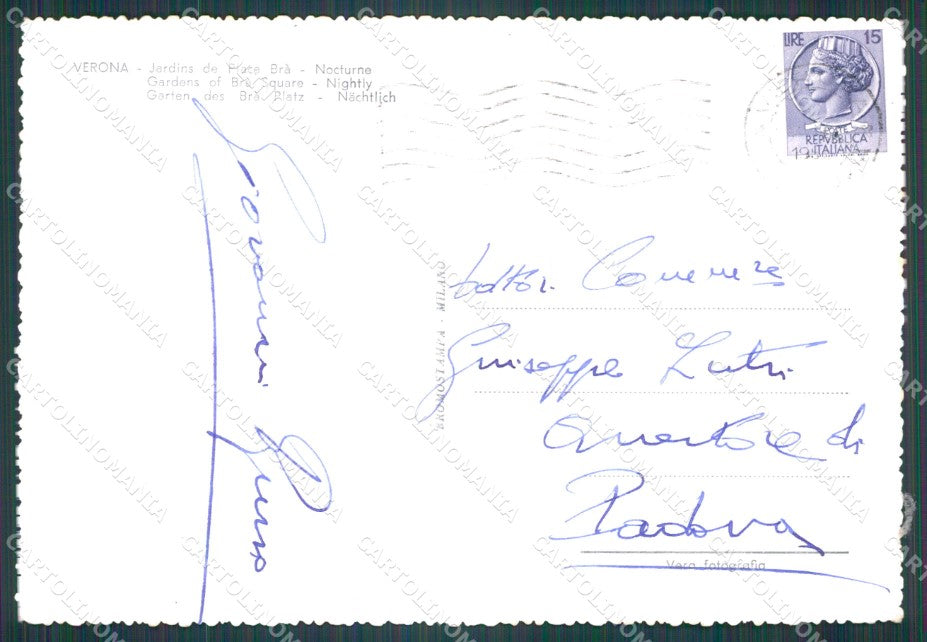 VERONA - Jardins de Place Brà - Nocturne
Gardens of Brà Square - Nightly
Garten des Brà Platz - Nächtlich
LIRE 15
REPVBBLICA
ITALIANA
Giovanni
BROMOSTAMPA - MILANO
dottor
Giuseppe
Questore di
Padova
Vera fotografia
CARTOLINOMANIA